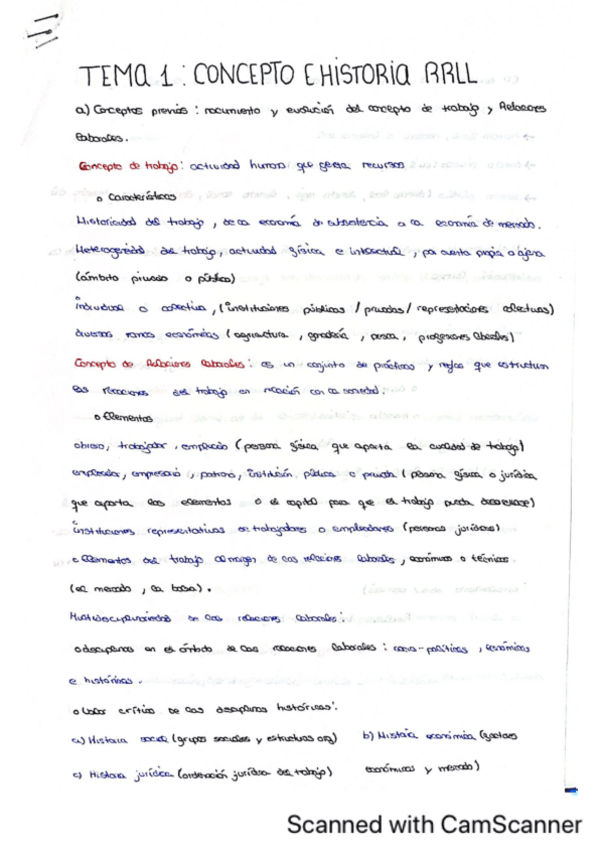 TEMA 1: CONCEPTO E HISTORIA RRLL
a) Conceptos previos: nacimiento y evolución del concepto de trabajo y Relaciones
Laborales.
Concepto de trabajo: actividad humana que genera recursos
o Características
Historicidad del trabajo, de la economía de subsistencia a la economía de mercado.
Heterogeneidad del trabajo, actividad física e intelectual, por cuenta propia o ajena
(ámbito privado o público)
individual o colectiva, (instituciones públicas / privadas / representaciones colectivas)
diversas ramas económicas (agricultura, ganadería, pesca, profesiones liberales)
Concepto de Relaciones Laborales: es un conjunto de prácticas y reglas que estructuran
las relaciones del trabajo en relación con la sociedad.
o Elementos
obrero, trabajador, empleado (persona física que aporta la cualidad de trabajo)
empleador, empresario, patrono, institución pública o privada (persona física o jurídica
que aporta los elementos o el capital para que el trabajo pueda desarrollarse)
instituciones representativas de trabajadores o empleadores (personas jurídicas)
o Elementos del trabajo al margen de las relaciones laborales, económicos o técnicos
(el mercado, la bolsa).
Multidisciplinariedad en las relaciones laborales:
o disciplinas en el ámbito de las relaciones laborales: socio-políticas, económicas
e históricas.
o Valor crítico de las disciplinas históricas:
a) Historia social (grupos sociales y estructuras org) b) Historia económica (factores
c) Historia jurídica (ordenación jurídica del trabajo) económicos y mercado)
Scanned with CamScanner